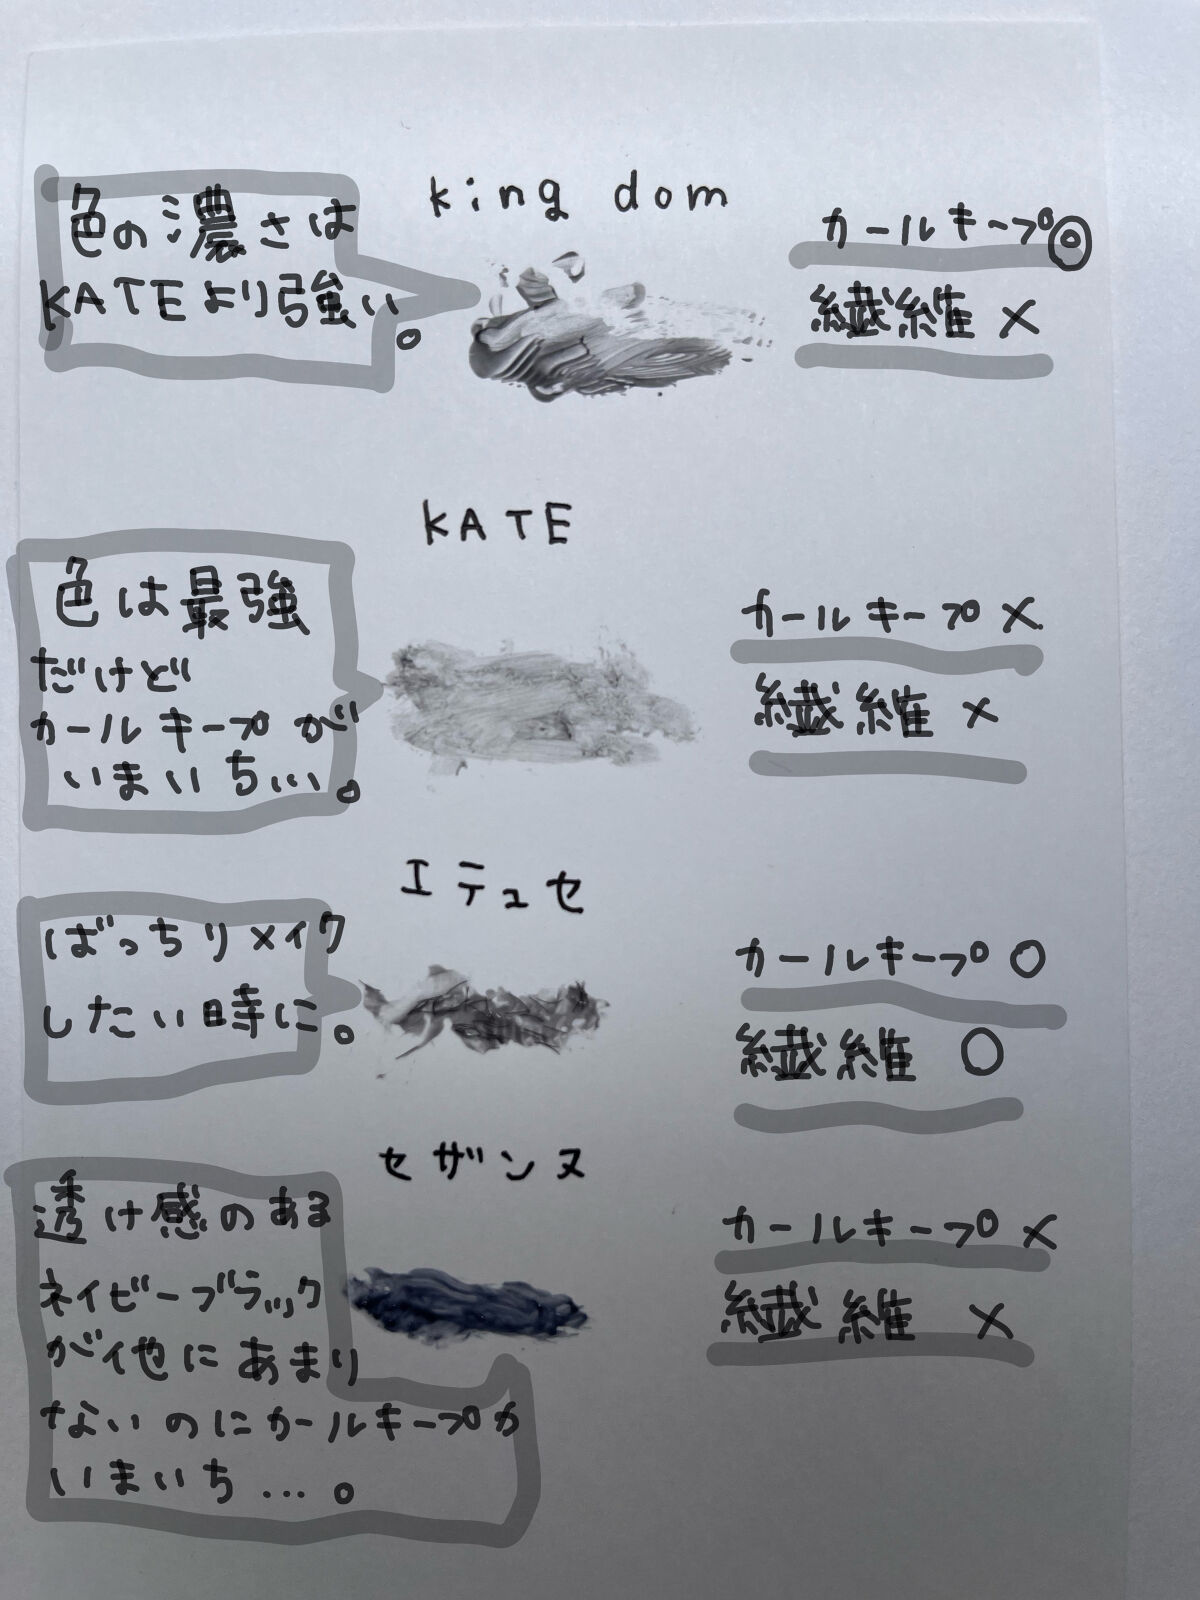 king dom
色の濃さは
KATEより強い。
カールキープ◎
繊維 ×
KATE
色は最強
だけど
カールキープが
いまいち…。
カールキープ ×
繊維 ×
エテュセ
ばっちりメイク
したい時に。
カールキープ ○
繊維 ○
セザンヌ
透け感のある
ネイビーブラック
が他にあまり
ないのにカールキープが
いまいち…。
カールキープ ×
繊維 ×